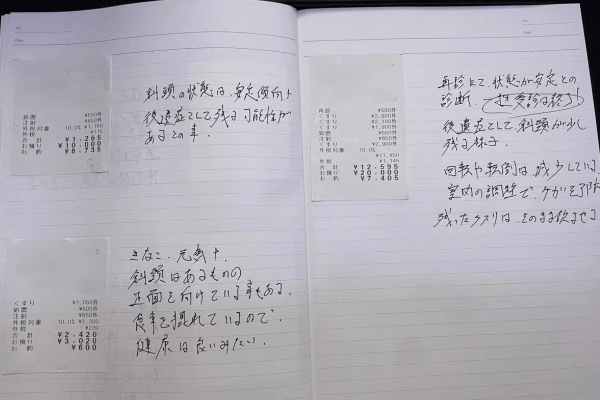 処置 ¥500外
注射 ¥650外
外税対象 10.0% ¥1,150
外税 ¥115
合計 ¥1,265
お預り ¥10,000
お釣 ¥8,735
斜頚の状態は、安定傾向↑
後遺症として残る可能性が
あるとの事。
くすり ¥1,050外
処置 ¥500外
注射 ¥650外
外税対象 10.0% ¥2,200
外税 ¥220
合計 ¥2,420
お預り ¥3,020
お釣 ¥600
きなこ、元気↑
斜頚はあるものの
正面を向けている事もある。
食事も摂れているので
健康は良いみたい。
再診 ¥500外
くすり ¥2,900外
くすり ¥2,100外
くすり ¥1,900外
処置 ¥500外
注射 ¥650外
くすり ¥2,900外
¥11,450
外税 ¥1,145
合計 ¥12,595
お預り ¥20,000
お釣 ¥7,405
再診にて、状態が安定との
診断。受診は終了
後遺症として、斜頚が少し
残る様子。
回転や転倒は、減少している
室内の調整で、ケガを予防
残ったクスリは、そのまま飲ませる